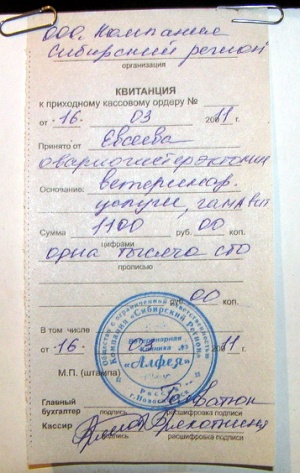 ООО. Компания
Сибирский регион
организация
КВИТАНЦИЯ
к приходному кассовому ордеру №
от "16" 03 2011 г.
Принято от Евсеева
овариогистерэктомия
Основание: ветеринар.
услуги, гамавит
Сумма 1100 руб. 00 коп.
цифрами
одна тысяча сто
прописью
руб. 00 коп.
В том числе
от "16" 03 2011
Общество с ограниченной ответственностью
Компания «Сибирский Регион»
Ветеринарная
клиника
"Алфея"
Россия
М.П. (штампа)
Главный
бухгалтер
подпись расшифровка подписи
Кассир
подпись расшифровка подписи